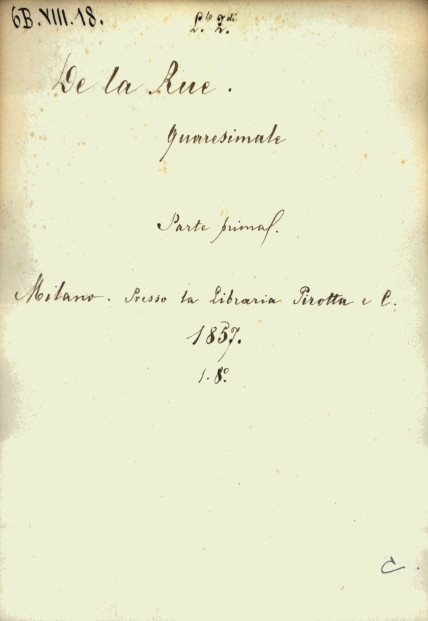 6B.VIII.18.
De la Rue.
Quaresimale
Parte prima.
Milano. Presso la Libraria Pirotta e C.
1857.
1. 8°.
C.